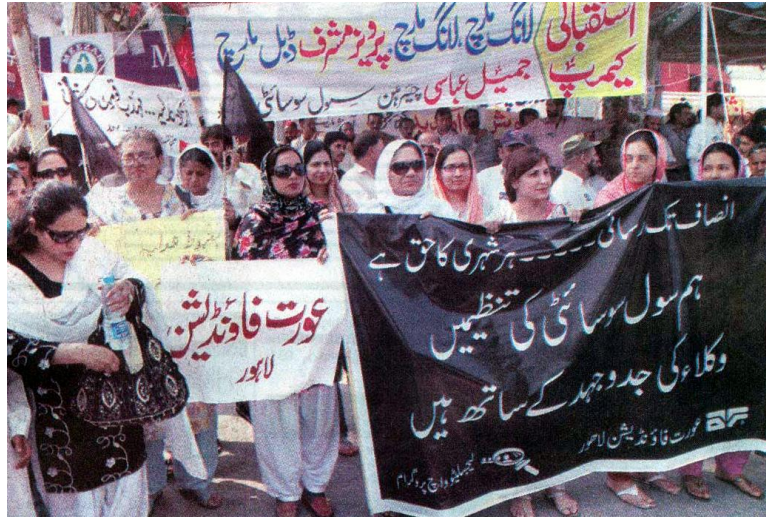 استقبالی کیمپ
لانگ مارچ، لانگ مارچ، پرویز مشرف ڈبل مارچ
جمیل عباسی چیئرمین سول سوسائٹی
M
عورت فاؤنڈیشن
لاہور
انصاف تک رسائی ----- ہر شہری کا حق ہے
ہم سول سوسائٹی کی تنظیمیں
وکلاء کی جدوجہد کے ساتھ ہیں
عورت فاؤنڈیشن لاھور
لیجسلیٹو واچ پروگرام